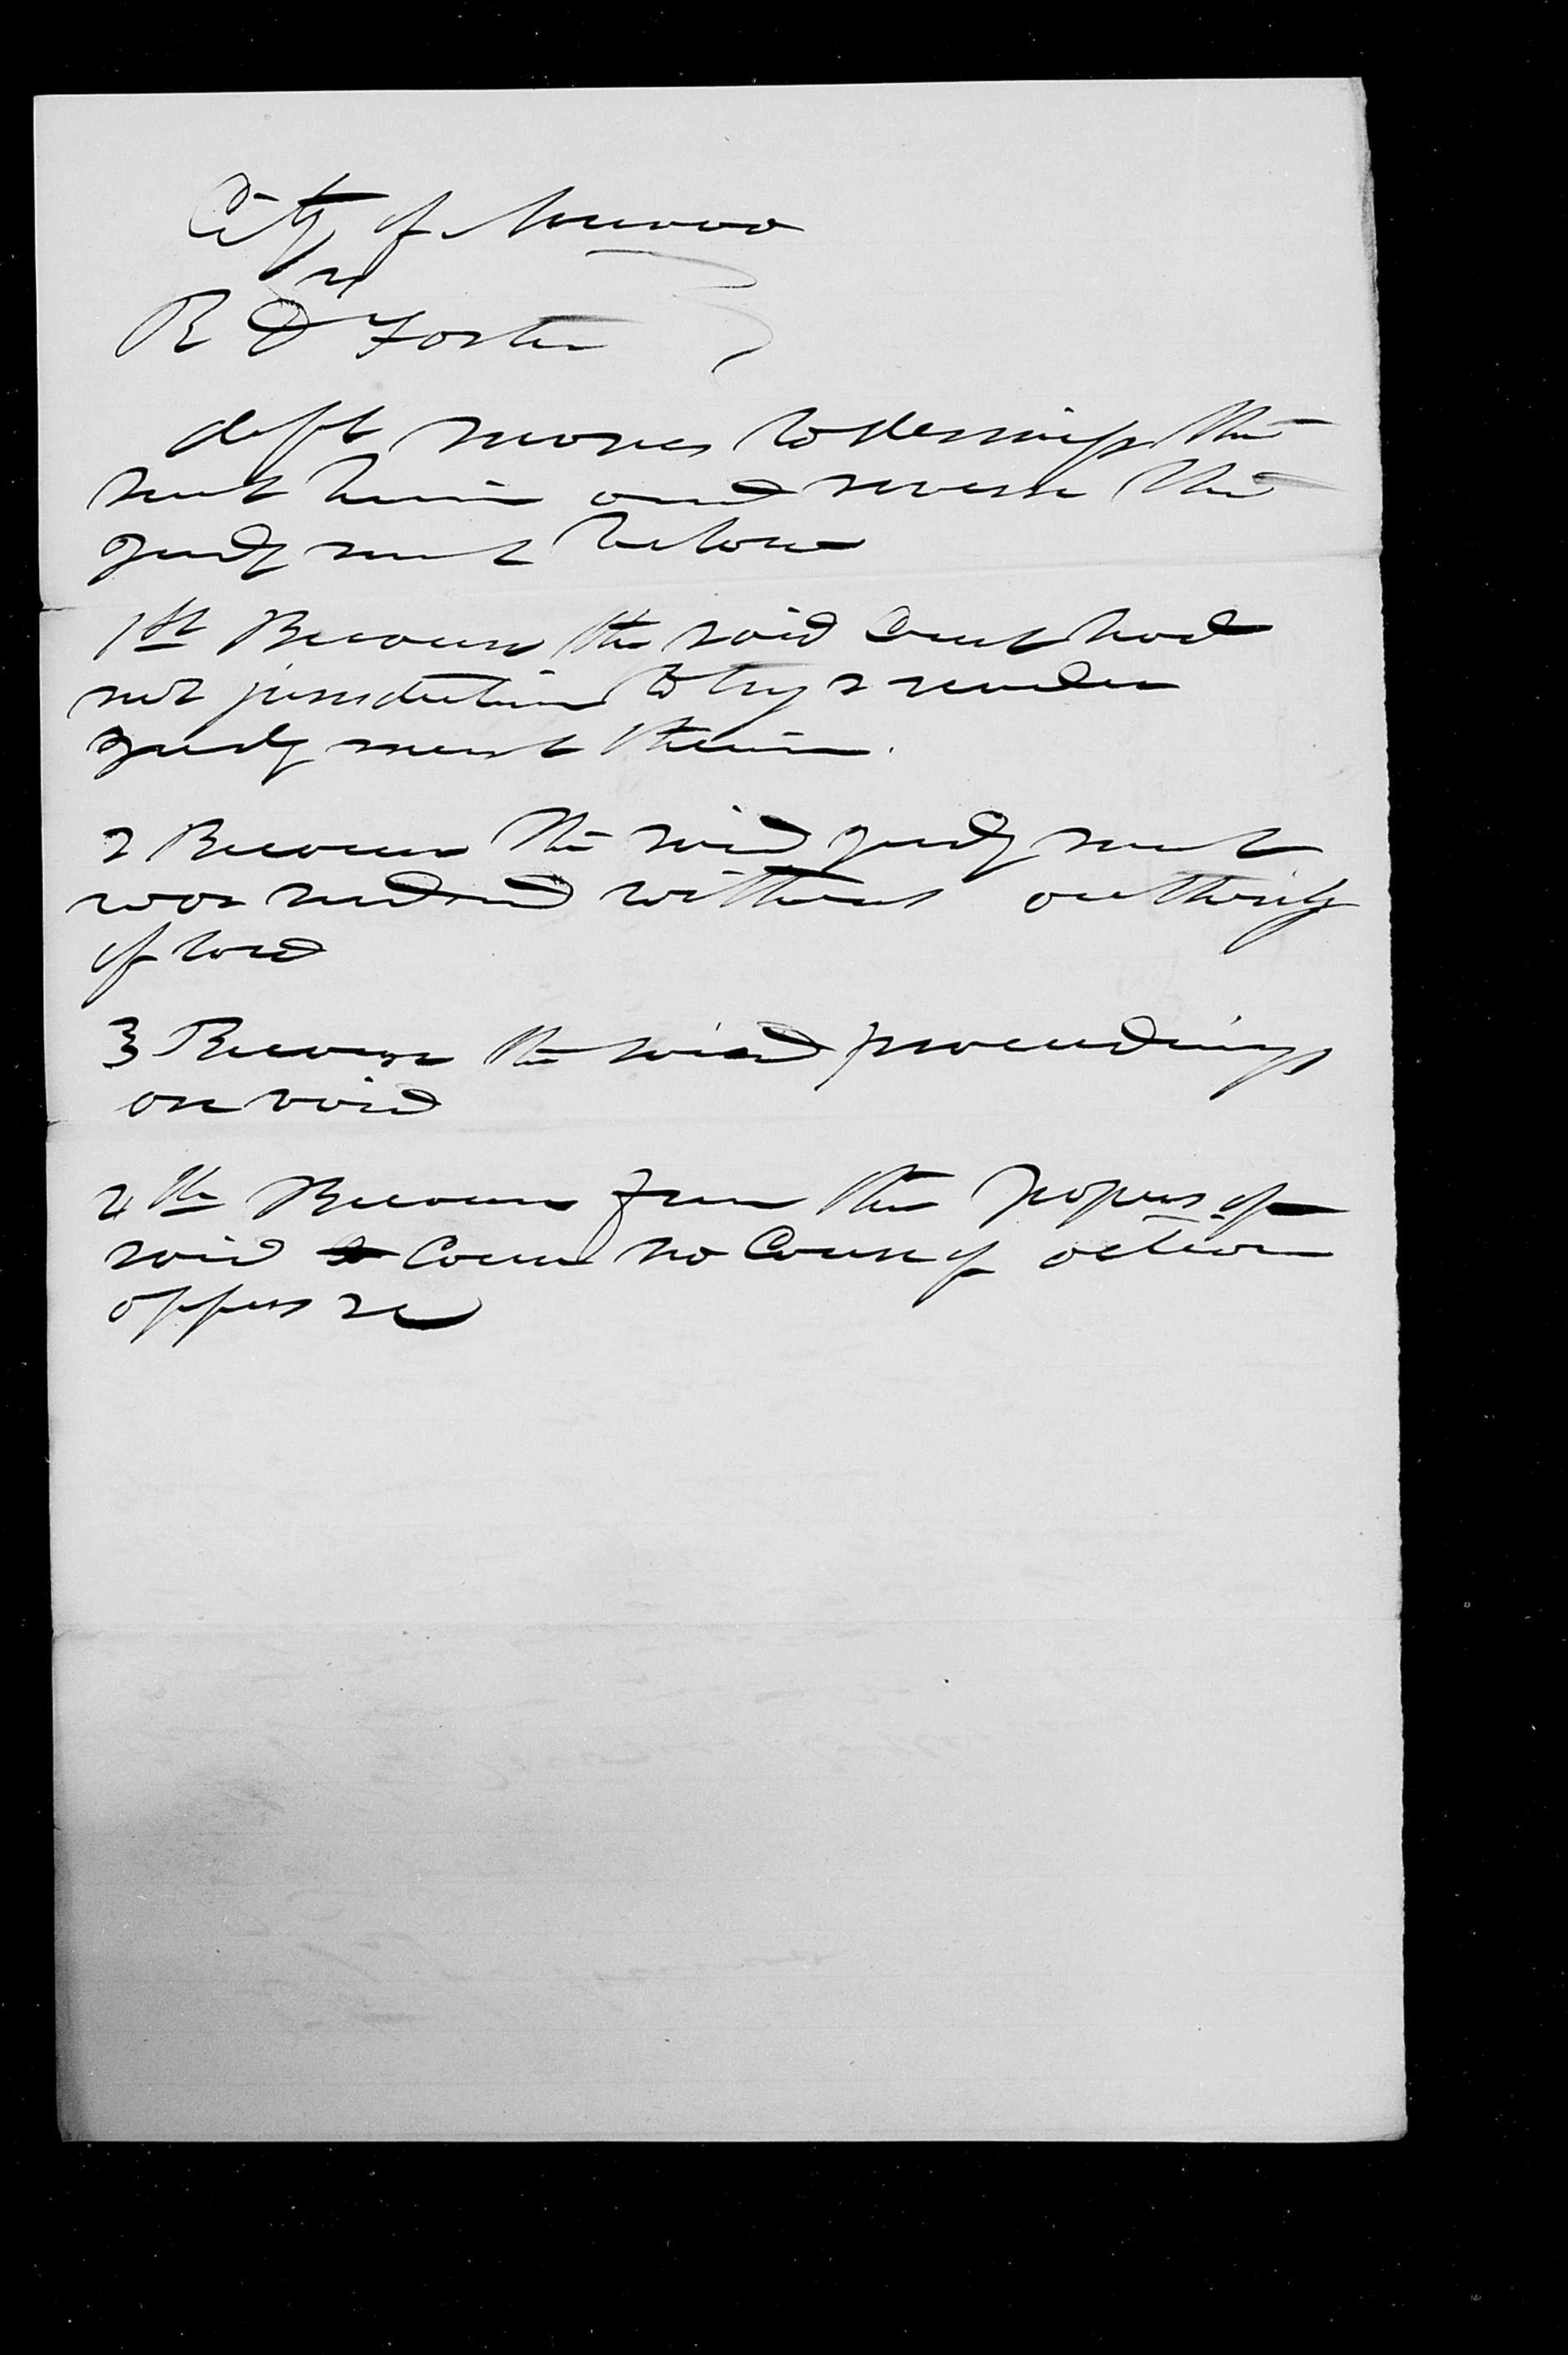 City of Nauvoo
vs
R D Foster
deft moves to dismiss this
suit herein and reverse the
judgment below
1st Because the said Court had
not jurisdiction to try & render
judgment therein.
2 Because the said judgment
was rendered without authority
of law
3 Because the said proceedings
are void
4th Because from the papers of
said Cause no Cause of action
appears &c